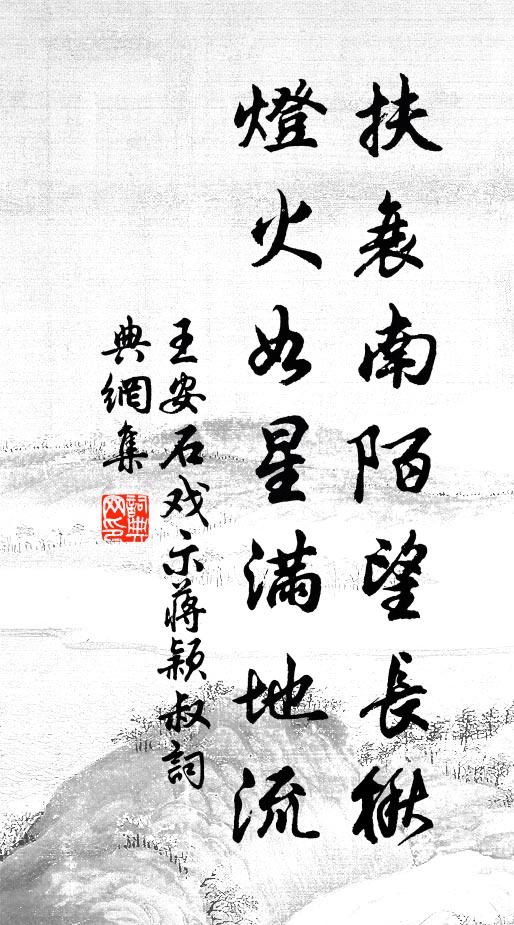 扶衰南陌望長楸
燈火如星滿地流
王安石戏示蔣颖叔詞
典網集
詞典網印